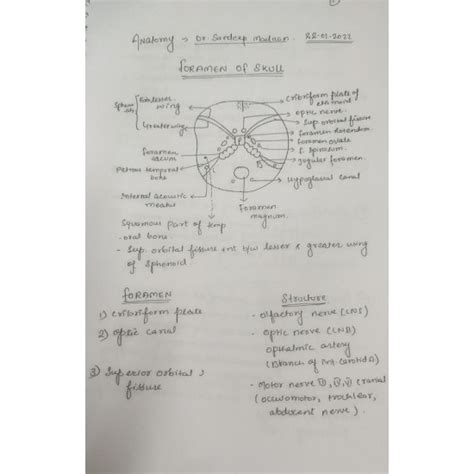 Anatomy → Dr. Sandeep
FORAMEN OF SKULL
Sphenoid
wing
Greater wing
foramen
Petrous temporal
bone
Internal acoustic
meatus
Squamous part of temp
oral bone.
Cribriform plate of
ethmoid
optic nerve
Sup. orbital fissure
foramen ovale
f. spinosum
Jugular foramen
Hypoglossal canal
Foramen
magnum
- Sup. orbital fissure b/w lesser & greater wing
of Sphenoid.
FORAMEN
Structure
1) Cribriform plate
- olfactory nerve (CN1)
2) optic canal
- optic nerve
artery
(Branch of int. carotid A)
3) Superior orbital
fissure
- Motor nerve cranial
(occulomotor, trochlear,
abducent nerve).